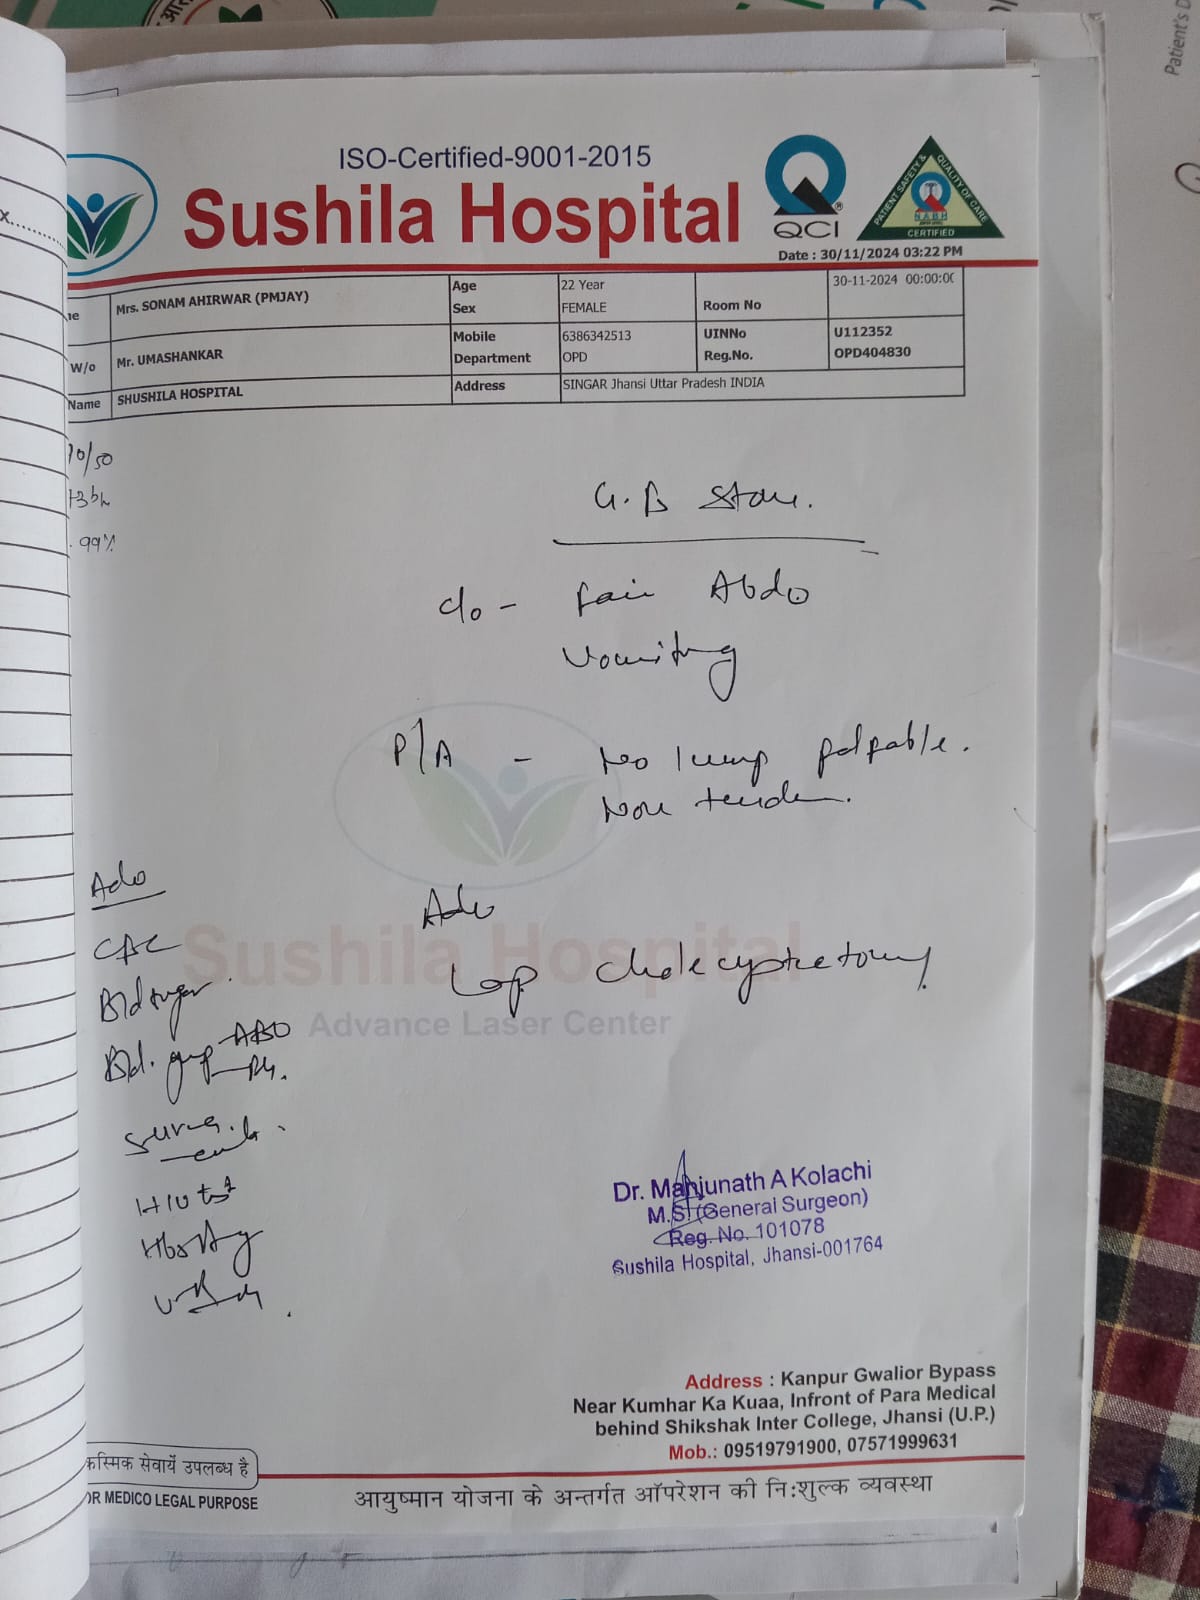 ISO-Certified-9001-2015
Sushila Hospital
QCI
PATIENT SAFETY & QUALITY OF CARE
NABH
CERTIFIED
Date : 30/11/2024 03:22 PM
Mrs. SONAM AHIRWAR (PMJAY)
Age 22 Year 30-11-2024 00:00:00
Sex FEMALE Room No
Mobile 6386342513 UINNo U112352
W/o Mr. UMASHANKAR Department OPD Reg.No. OPD404830
Name SHUSHILA HOSPITAL Address SINGAR Jhansi Uttar Pradesh INDIA
70/50
99%
G.B Stone.
c/o - Pain Abdo
Vomiting
P/A - No lump palpable.
Non tender.
Adv
CBC
Bld sugar
Bld. group ABO
Rh.
Adv
Lap cholecystectomy.
Sushila Hospital
Advance Laser Center
HbsAg
Dr. Manjunath A Kolachi
M.S. (General Surgeon)
Reg. No. 101078
Sushila Hospital, Jhansi-001764
Address : Kanpur Gwalior Bypass
Near Kumhar Ka Kuaa, Infront of Para Medical
behind Shikshak Inter College, Jhansi (U.P.)
Mob.: 09519791900, 07571999631
कस्मिक सेवायें उपलब्ध है
OR MEDICO LEGAL PURPOSE
आयुष्मान योजना के अन्तर्गत ऑपरेशन की नि:शुल्क व्यवस्था
Patient's D